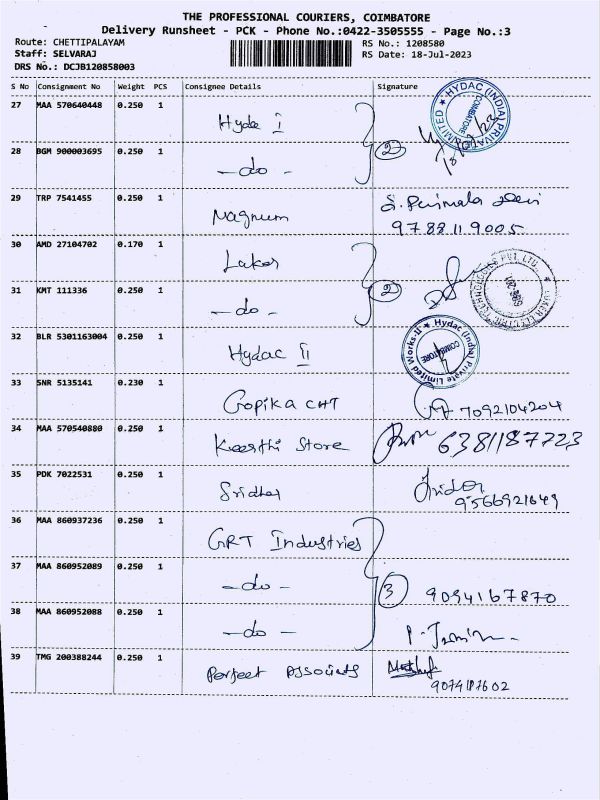 THE PROFESSIONAL COURIERS, COIMBATORE
Delivery Runsheet - PCK - Phone No.:0422-3505555 - Page No.:3
Route: CHETTIPALAYAM RS No.: 1208580
Staff: SELVARAJ RS Date: 18-Jul-2023
DRS No.: DCJB120858003
S No Consignment No Weight PCS Consignee Details Signature
27 MAA 570640448 0.250 1
HYDAC (INDIA) PRIVATE LIMITED COIMBATORE
28 BGM 900003695 0.250 1 2
- do -
29 TRP 7541455 0.250 1
Magnum 9788119005
30 AMD 27104702 0.170 1
Laker
31 KMT 111336 0.250 1 2
- do -
32 BLR 5301163004 0.250 1
Hydac II Hydac (India) Private Limited Works-II COIMBATORE
33 SNR 5135141 0.230 1
Gopika CHT 7092104204
34 MAA 570540880 0.250 1
Keerthi Store 6381187223
35 PDK 7022531 0.250 1
Sridhar 9566921649
36 MAA 860937236 0.250 1
GRT Industries
37 MAA 860952089 0.250 1
- do - 3 9094167870
38 MAA 860952088 0.250 1
- do -
39 TMG 200388244 0.250 1
Perfect Associates